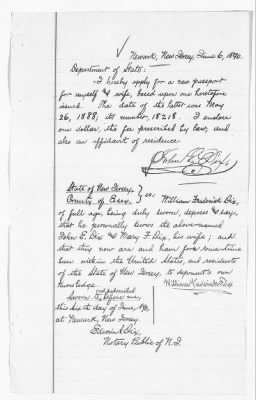 Newark, New Jersey, June 6, 1890.
Department of State.
I hereby apply for a new passport
for myself & wife, based upon one heretofore
issued. The date of the latter was May
26, 1888, its number, 18218. I enclose
one dollar, the fee prescribed by law, and
also an affidavit of residence.
John E. Dix
State of New Jersey,
County of Essex. } ss: William Frederick Dix,
of full age, being duly sworn, deposes & says,
that he personally knows the above-named
John E. Dix & Mary F. Dix, his wife; and
that they now are and have for some time
been within the United States, and residents
of the State of New Jersey, to deponent's own
knowledge.
William Frederick Dix
Sworn & subscribed before me,
this sixth day of June, 1890,
at Newark, New Jersey.
Edwin A. Dix,
Notary Public of N.J.